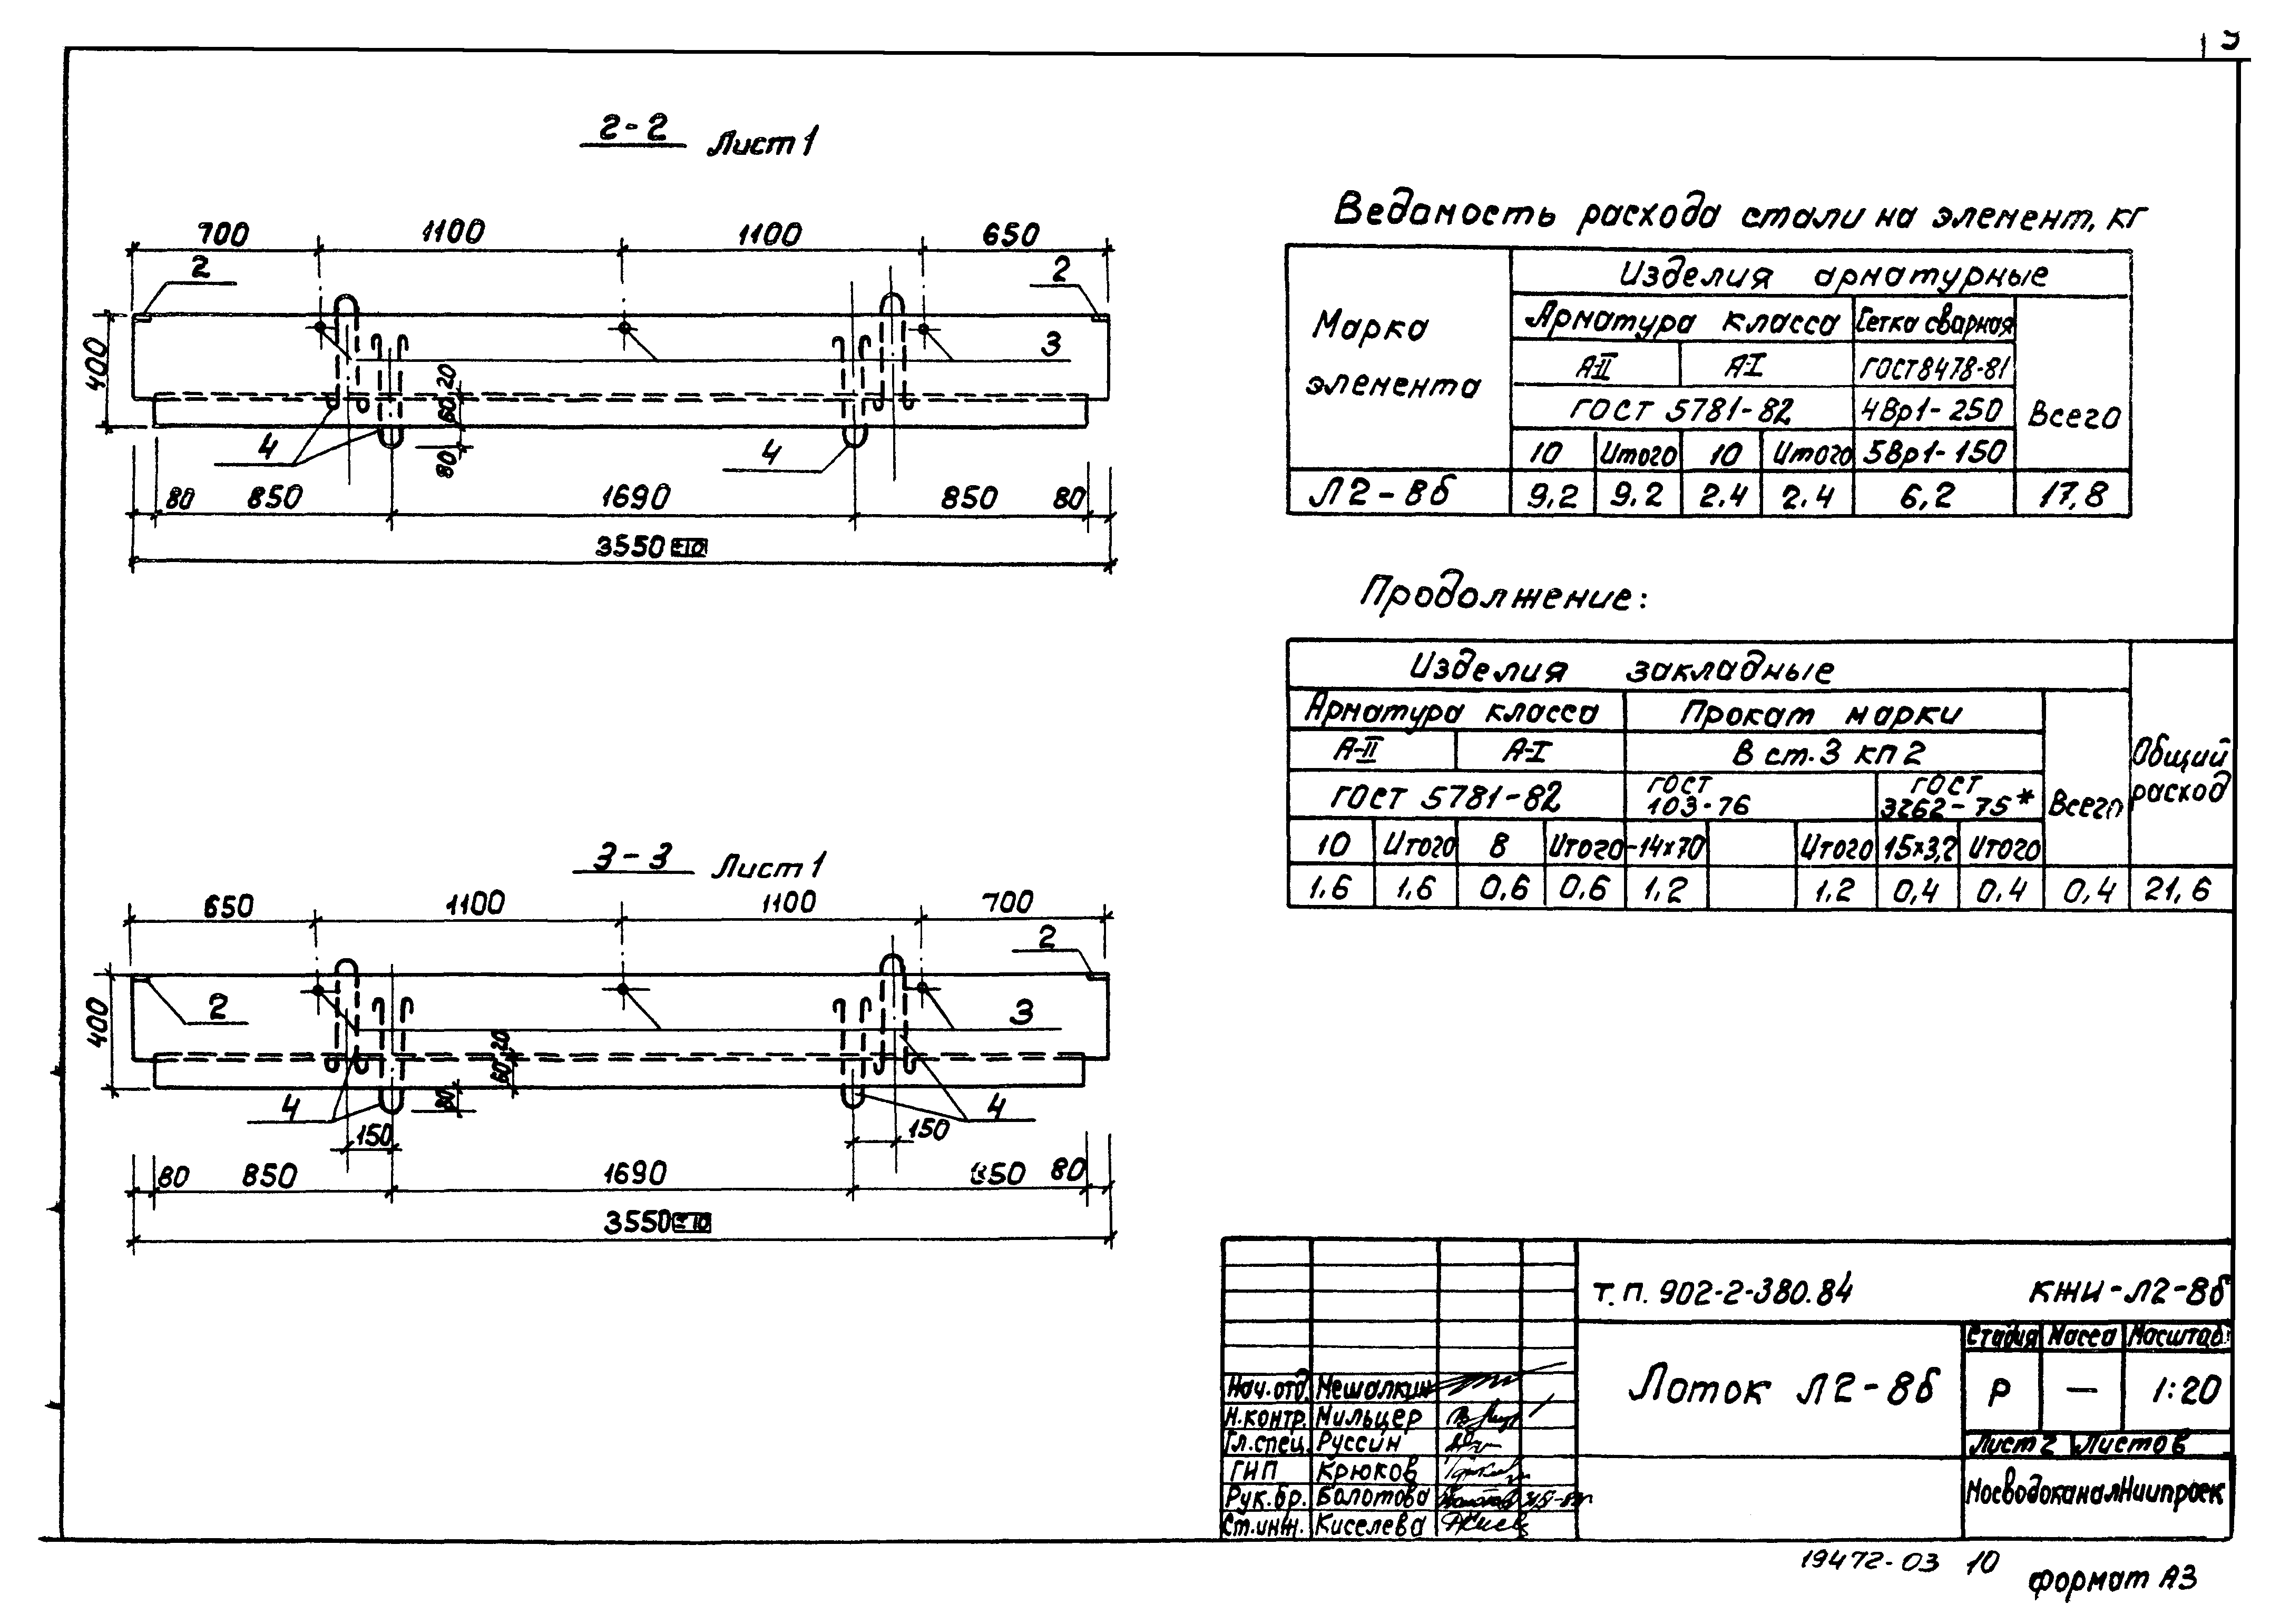 2-2 Лист 1
700 1100 1100 650
2 2
400
3
20
60
80
4 4
80 850 1690 850 80
3550 ±10
Ведомость расхода стали на элемент, кг
Марка элемента
Изделия арматурные
Арматура класса Сетка сварная
А-II А-I ГОСТ 8478-81
ГОСТ 5781-82 4Вр1-250 Всего
10 Итого 10 Итого 5Вр1-150
Л2-8б 9,2 9,2 2.4 2.4 6,2 17,8
Продолжение:
Изделия закладные
Арматура класса Прокат марки
А-II А-I В ст.3 кп 2
Общий расход
ГОСТ 5781-82 ГОСТ 103-76 ГОСТ 3262-75* Всего
10 Итого 8 Итого -14×70 Итого 15×3,2 Итого
1,6 1,6 0,6 0,6 1,2 1,2 0,4 0,4 0,4 21,6
3-3 Лист 1
650 1100 1100 700
2
2
400
3
20
60
80
4 4
150 150
80 850 1690 850 80
3550 ±10
Т.П. 902-2-380.84 КЖИ-Л2-8б
Стадия Масса Масштаб
Лоток Л2-8б Р — 1:20
Лист 2 Листов
МосводоканалНиипроек
Нач.отд. Мешалкин
Н.контр. Мильцер
Гл.спец. Руссин
ГИП Крюков
Рук.бр. Болотова
Ст.инж. Киселева
19472-03 10
Формат А3